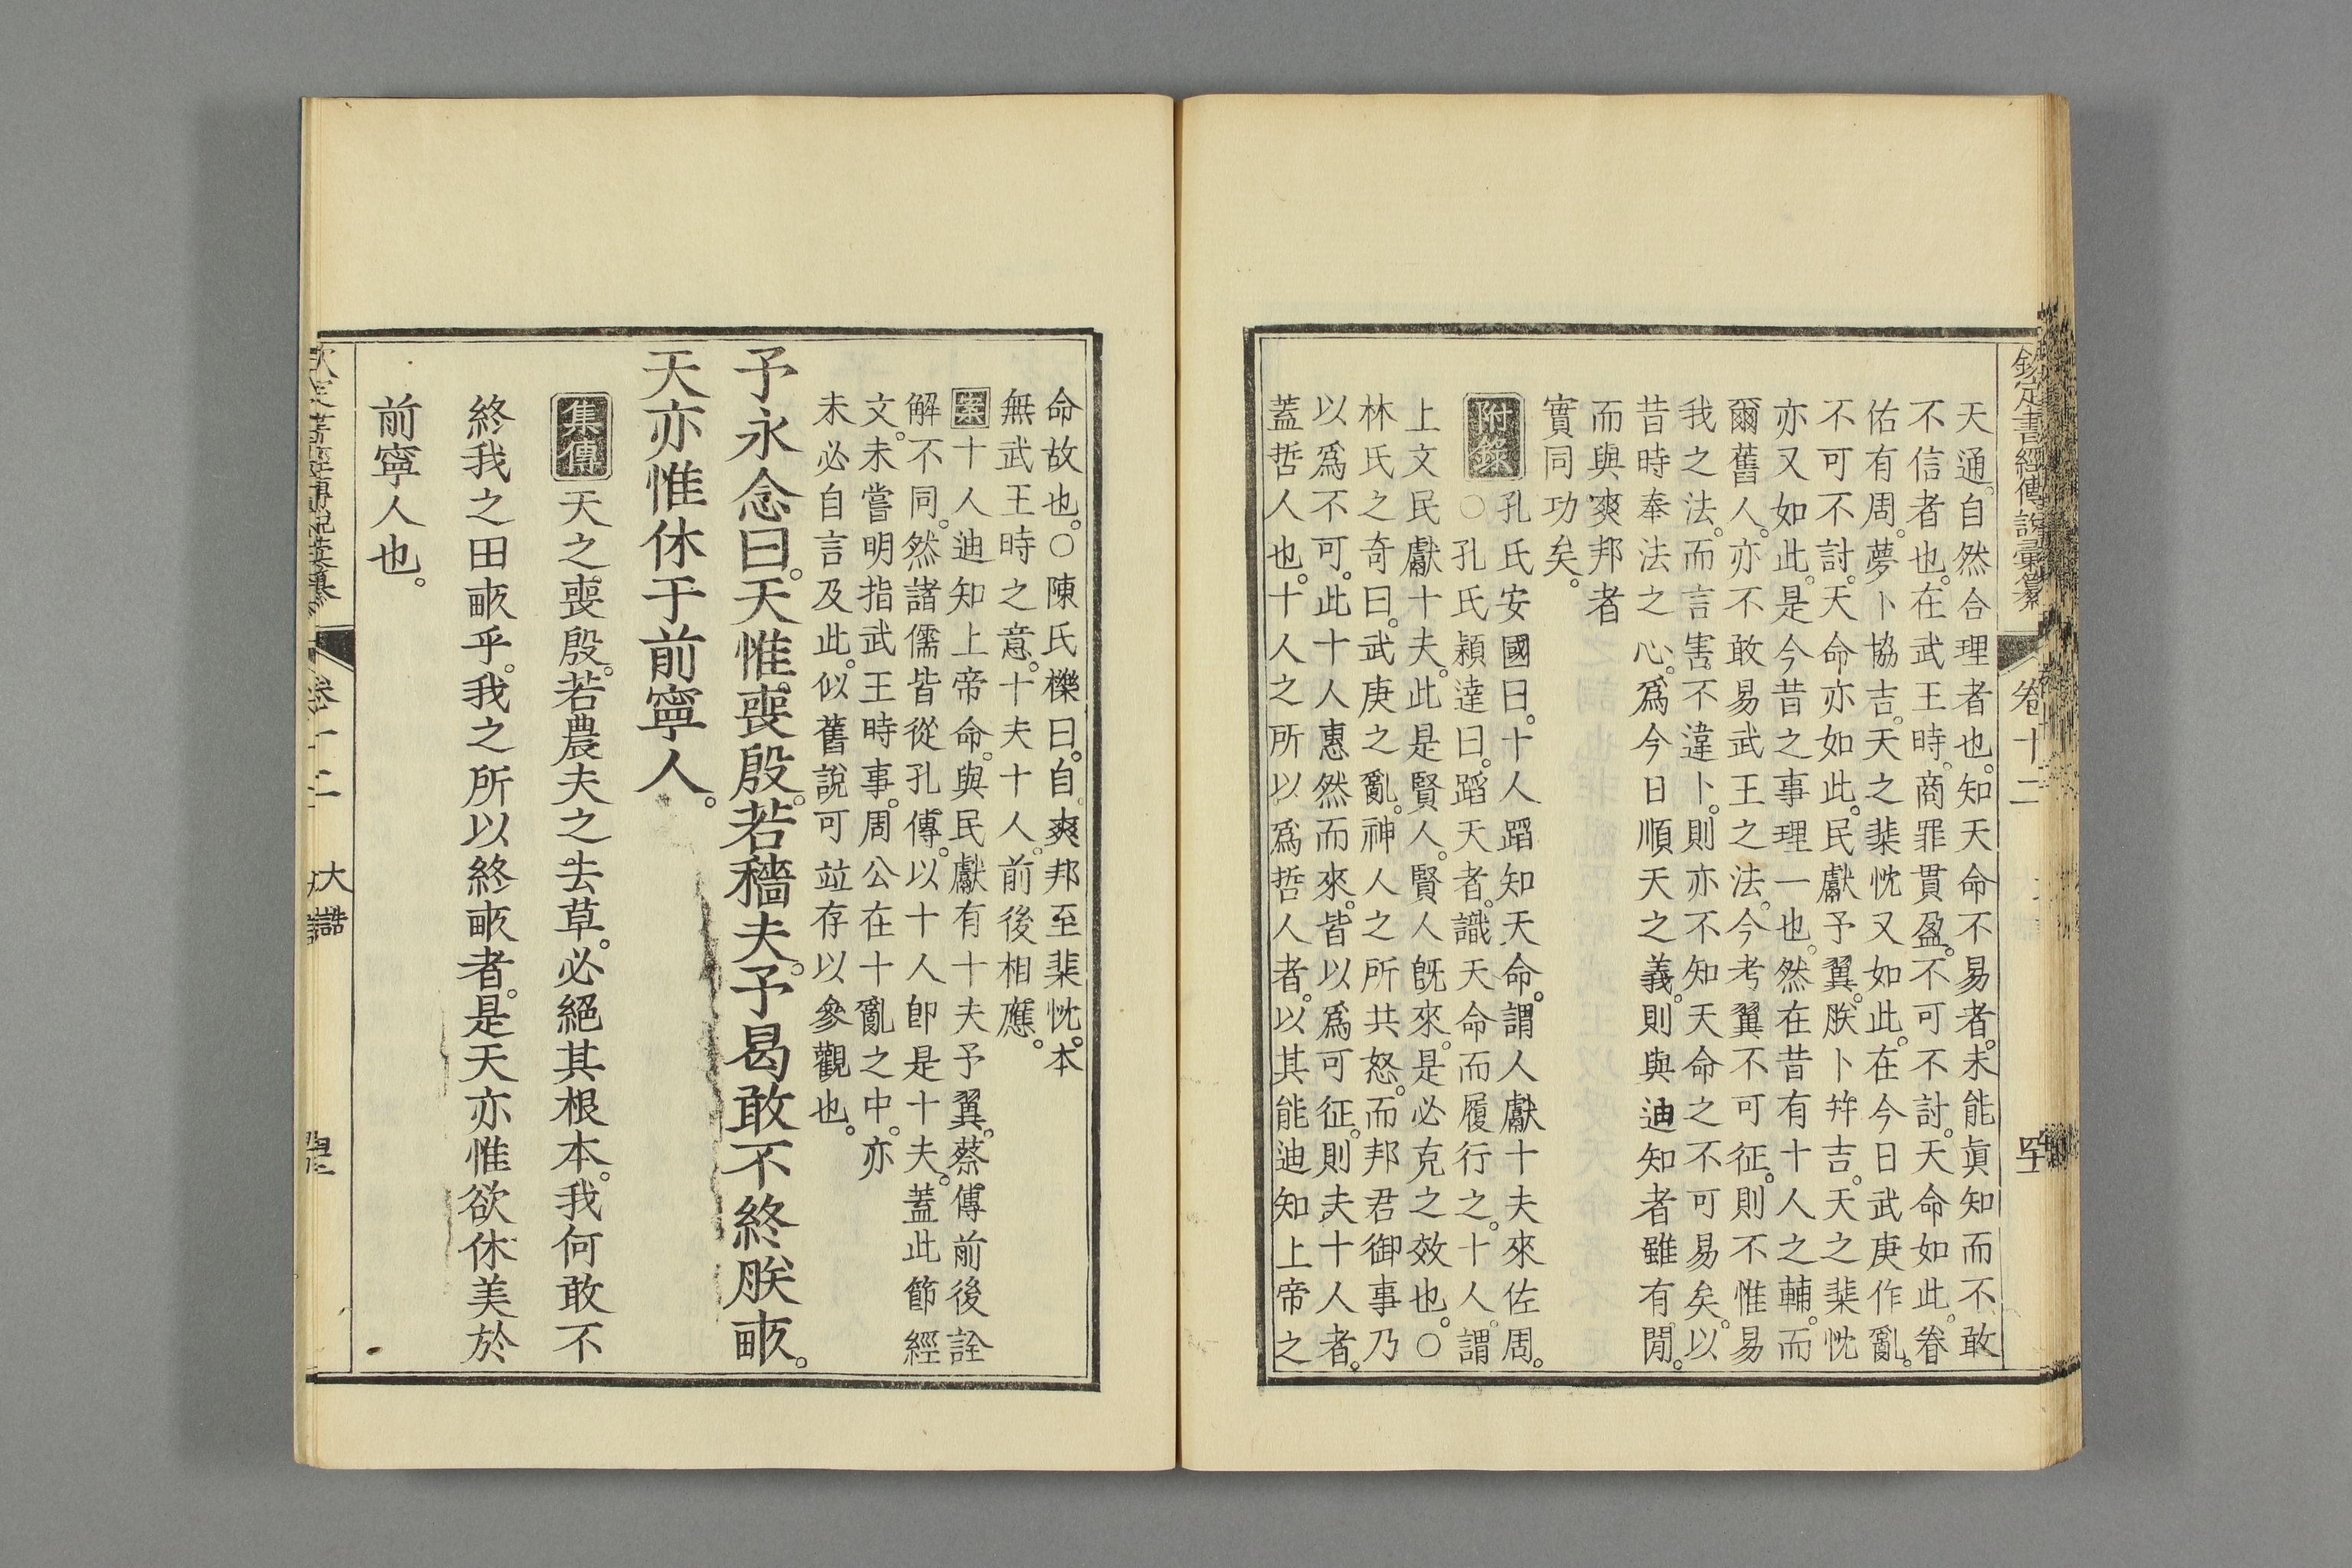 欽定書經傳說彙纂 卷十二
天通。自然合理者也。知天命不易者。未能眞知而不敢
不信者也。在武王時。商罪貫盈。不可不討。天命如此。眷
佑有周。夢卜協吉。天之棐忱又如此。在今日武庚作亂。
不可不討。天命亦如此。民獻予翼。朕卜幷吉。天之棐忱
亦又如此。是今昔之事理一也。然在昔有十人之輔。而
爾舊人。亦不敢易武王之法。今考翼不可征。則不惟易
我之法。而言害不違卜。則亦不知天命之不可易矣。以
昔時奉法之心。爲今日順天之義。則與迪知者雖有閒。
而與爽邦者
實同功矣。
附錄 孔氏安國曰。十人蹈知天命。謂人獻十夫來佐周。
○孔氏穎達曰。蹈天者。識天命而履行之。十人。謂
上文民獻十夫。此是賢人。賢人旣來。是必克之效也。○
林氏之奇曰。武庚之亂。神人之所共怒。而邦君御事乃
以爲不可。此十人惠然而來。皆以爲可征。則夫十人者。
蓋哲人也。十人之所以爲哲人者。以其能迪知上帝之
命故也。○陳氏櫟曰。自爽邦至棐忱。本
無武王時之意。十夫十人。前後相應。
案 十人迪知上帝命。與民獻有十夫予翼。蔡傳前後詮
解不同。然諸儒皆從孔傳。以十人卽是十夫。蓋此節經
文。未嘗明指武王時事。周公在十亂之中。亦
未必自言及此。似舊說可並存以參觀也。
予永念曰。天惟喪殷。若穡夫。予曷敢不終朕畝。
天亦惟休于前寧人。
集傳 天之喪殷。若農夫之去草。必絕其根本。我何敢不
終我之田畝乎。我之所以終畝者。是天亦惟欲休美於
前寧人也。
卷十二 大誥